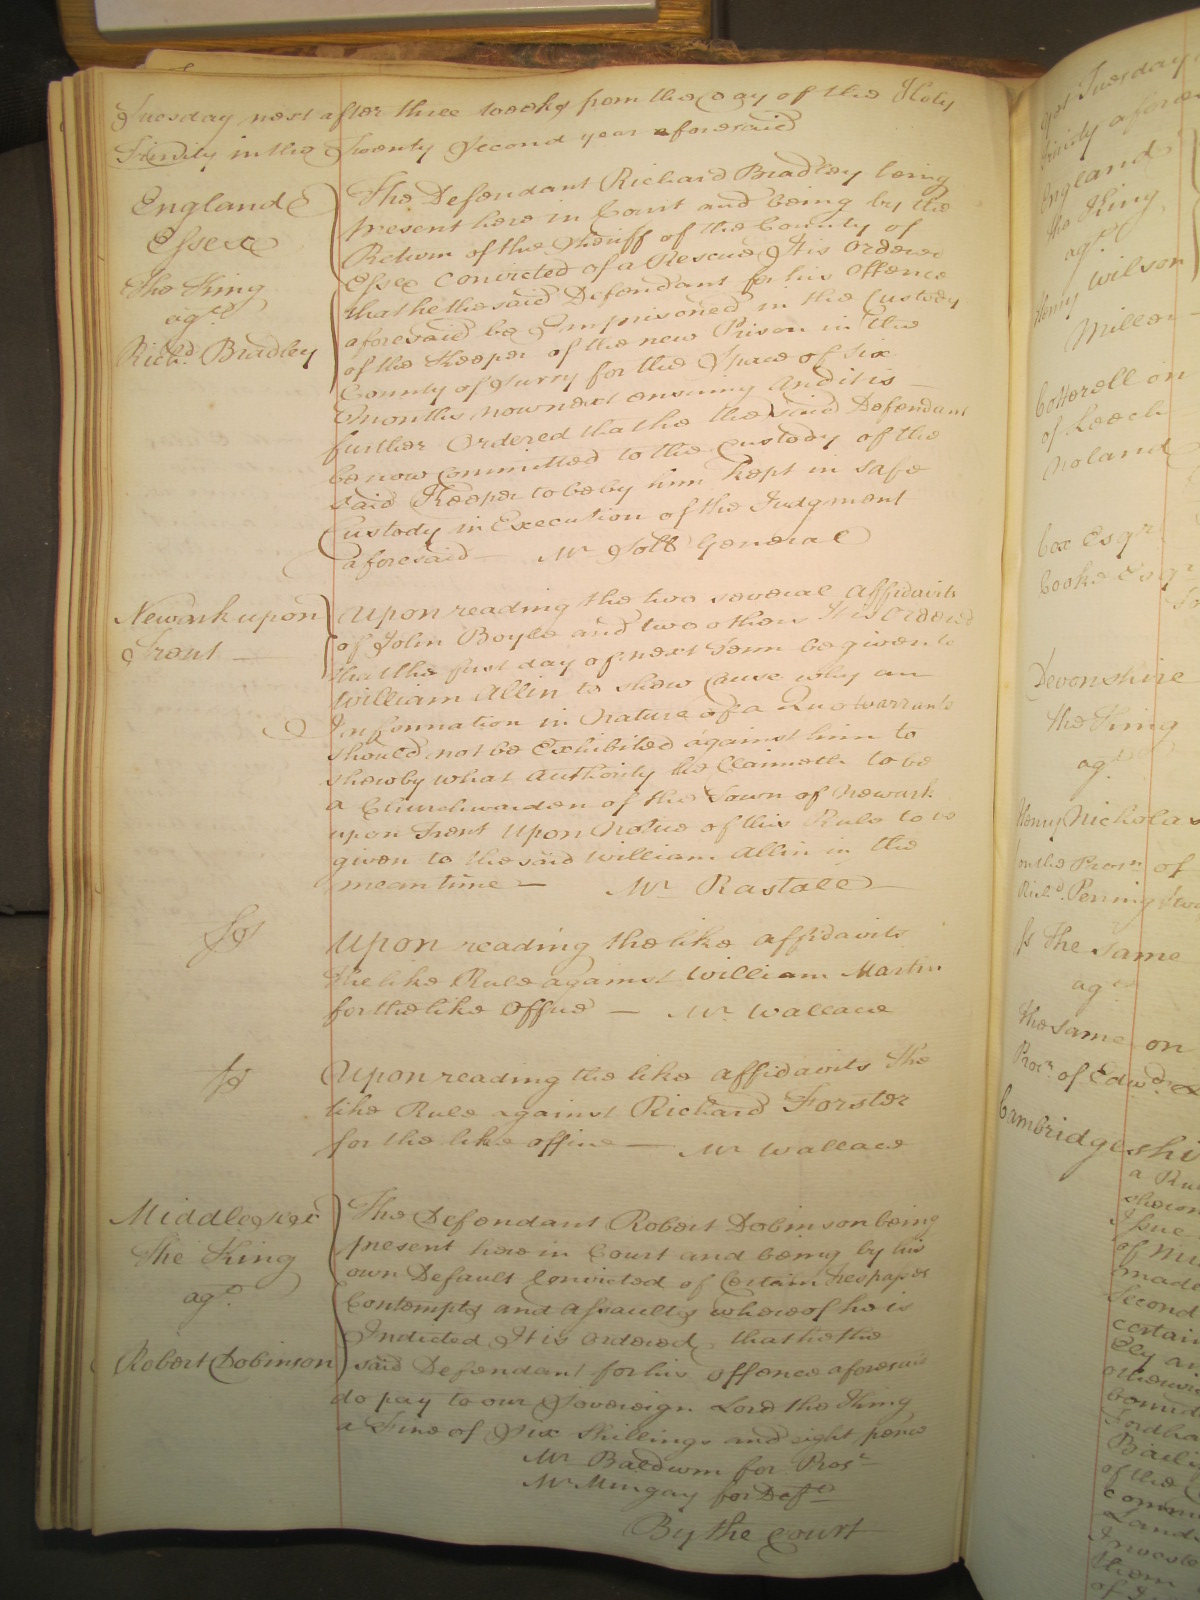 Tuesday next after three weeks from the day of the Holy
Trinity in the Twenty Second year aforesaid
England
Essex
The King
agt
Richd Bradley
The Defendant Richard Bradley being
present here in Court and being by the
Return of the Sheriff of the County of
Essex Convicted of a Rescue It is Ordered
that he the said Defendant for his Offence
aforesaid be Imprisoned in the Custody
of the Keeper of the new Prison in the
County of Surry for the Space of Six
Months now next ensuing And it is
further Ordered that he the said Defendant
be now Committed to the Custody of the
said Keeper to be by him kept in safe
Custody in Execution of the Judgment
aforesaid — Mr Sollr General
Newark upon
Trent —
Upon reading the two several Affidavits
of John Boyle and two others It is Ordered
that the first day of next Term be given to
William Allin to shew Cause why an
Information in Nature of a Quo Warranto
should not be Exhibited against him to
shew by what Authority he Claimeth to be
a Churchwarden of the Town of Newark
upon Trent Upon Notice of this Rule to be
given to the said William Allin in the
mean time — Mr Rastall
So
Upon reading the like affidavits
the like Rule against William Martin
for the like Offence — Mr Wallace
So
Upon reading the like Affidavits The
like Rule against Richard Forster
for the like offence — Mr Wallace
Middlesex
The King
agt
Robert Dobinson
The Defendant Robert Dobinson being
present here in Court and being by his
own Default Convicted of Certain Trespasses
Contempts and Assaults whereof he is
Indicted It is Ordered that he the
said Defendant for his offence aforesaid
do pay to our Sovereign Lord the King
a Fine of Six Shillings and eight pence
Mr Baldwin for Prosr
Mr Mingay for Deft
By the Court
England
the King
agt
Henry Wilson
Miller
Cotterell on
of Leech
Noland
Cox Esqr
Cooke Esqr
Devonshire
the King
agt
Henry Nicholas
on the Prosn of
Richd Penning
The same
agt
the same on
Prosn of Edwd
Cambridgeshi
a Ru
shewn
of
made
Second
certain
Ely an
otherwi
bound
Fordha
Baili
of the
comm
Land
them